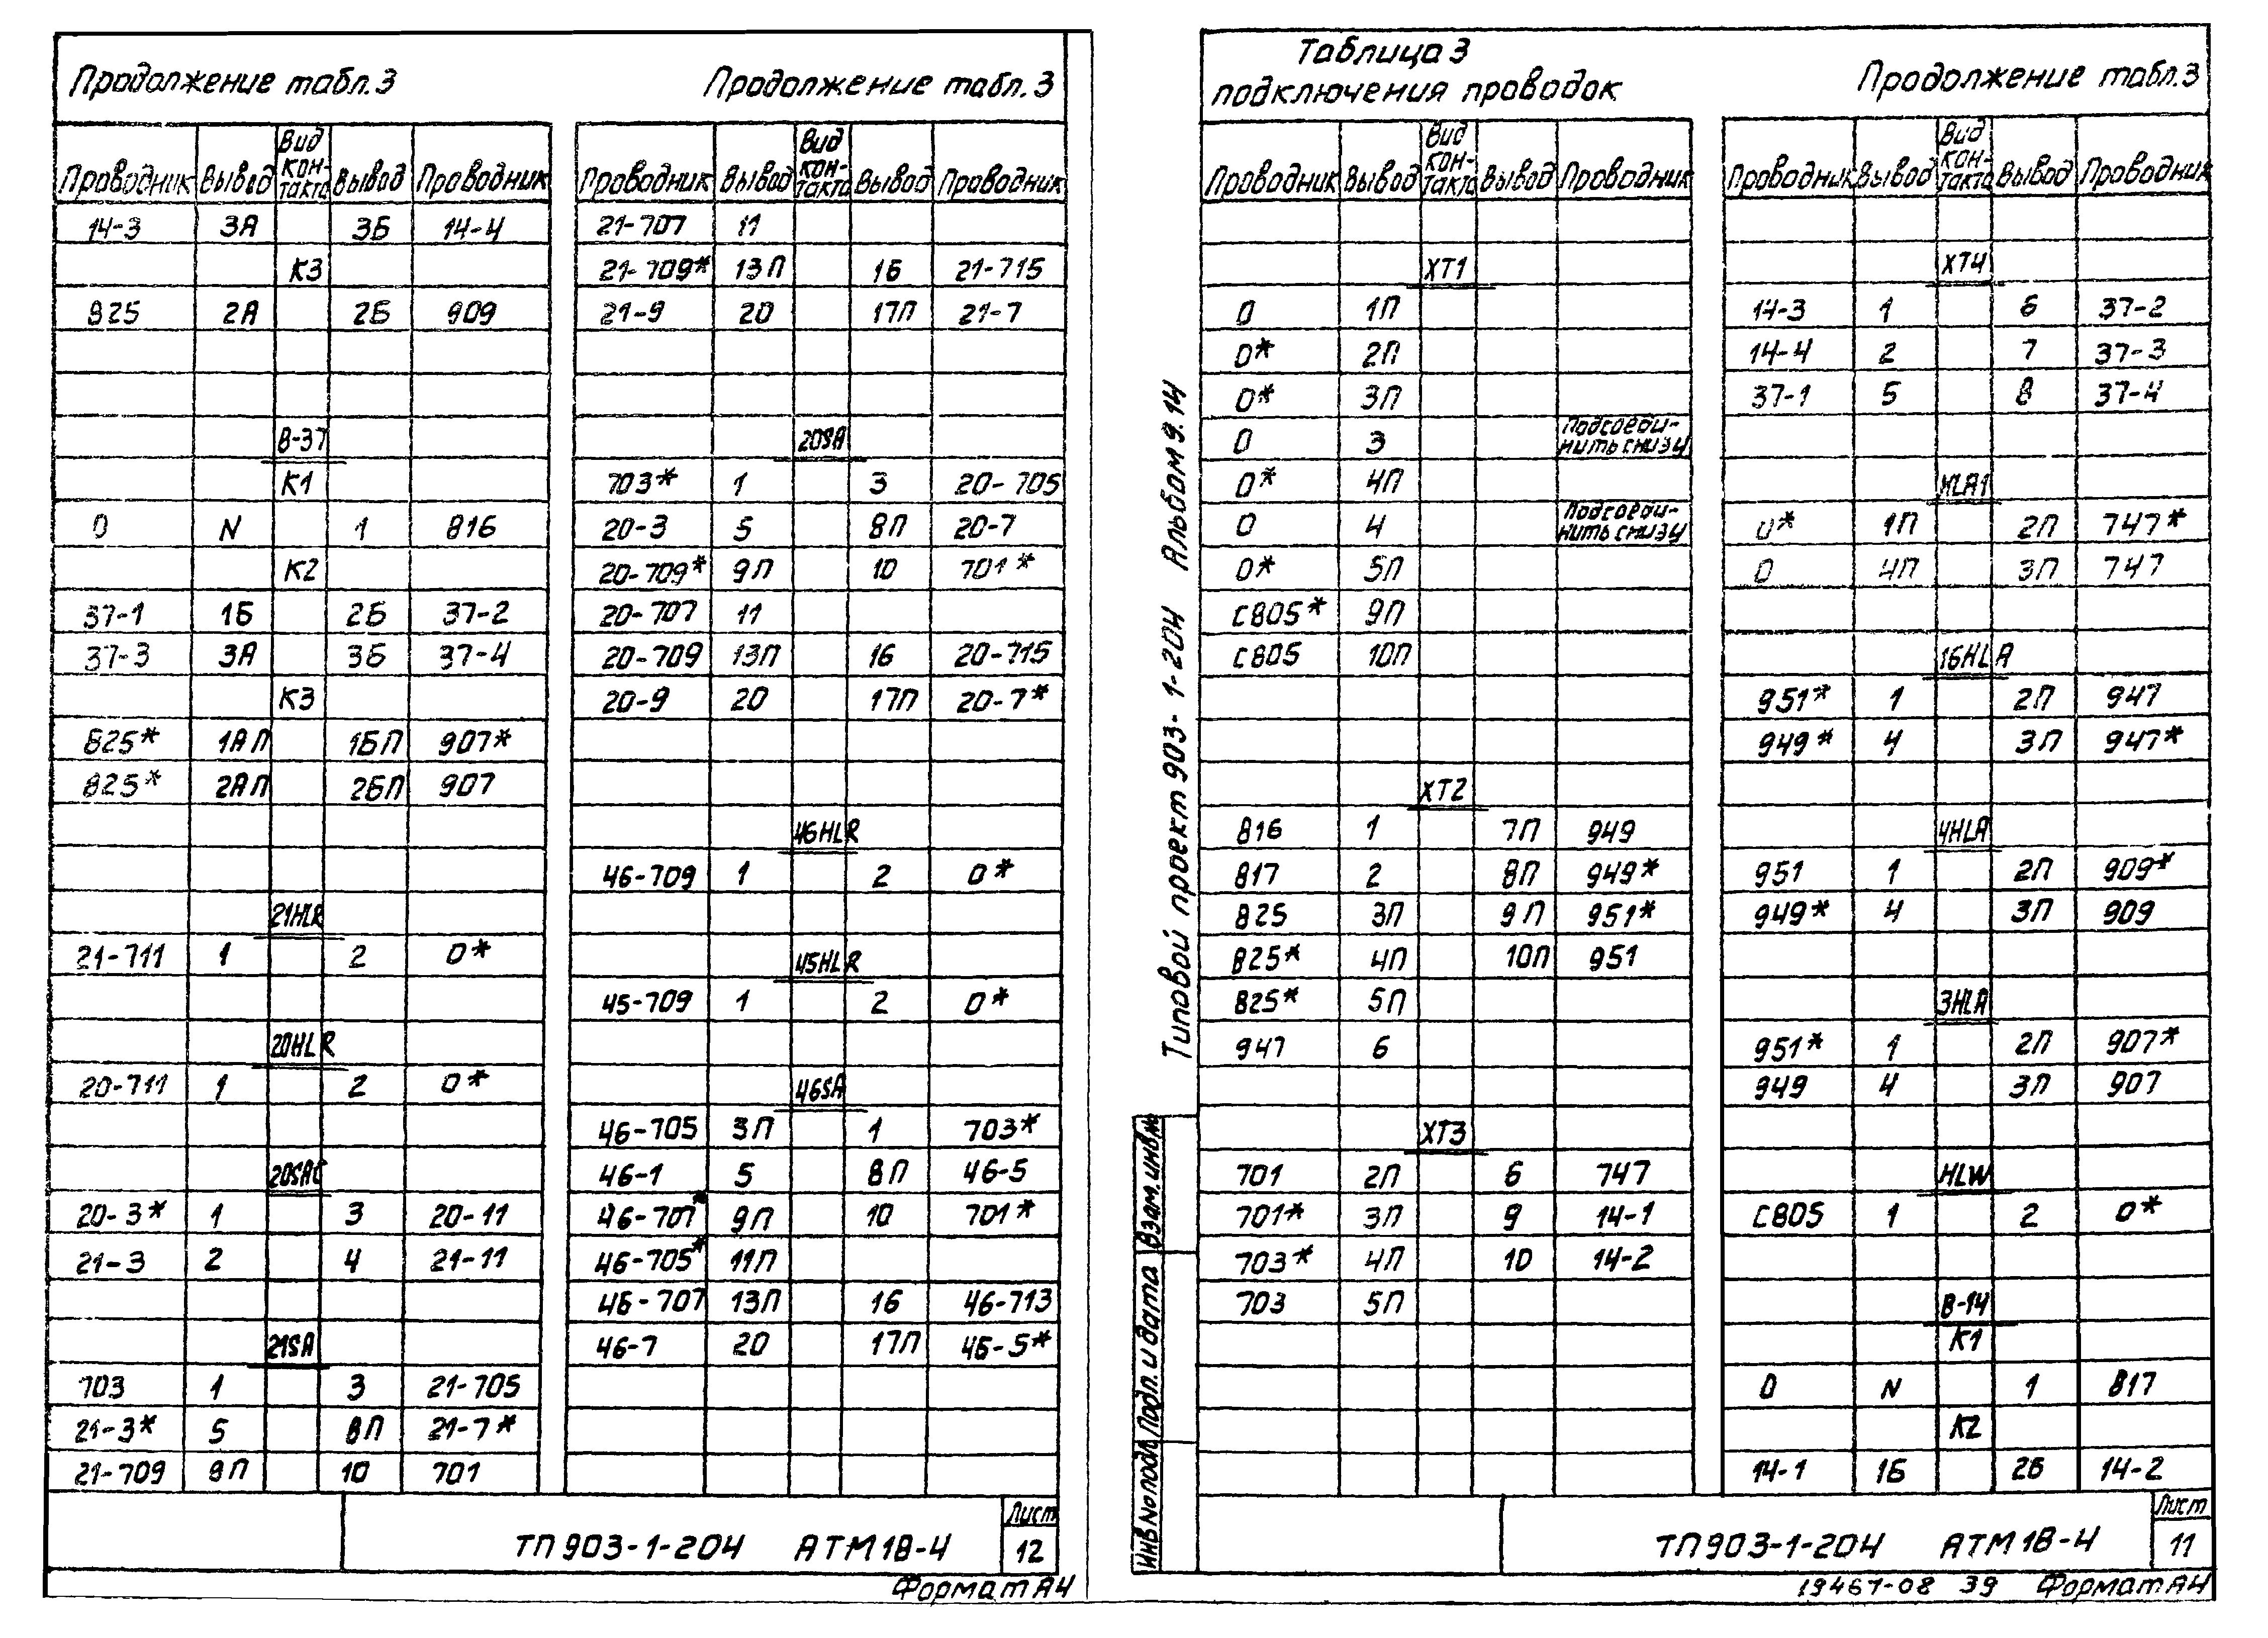 Продолжение табл.3
Проводник Вывод Вид контакта Вывод Проводник
14-3 3А 3Б 14-4
К3
825 2А 2Б 909
В-37
К1
0 N 1 816
К2
37-1 1Б 2Б 37-2
37-3 3А 3Б 37-4
К3
825* 1АП 1БП 907*
825* 2АП 2БП 907
21HLR
21-711 1 2 0*
20HLR
20-711 1 2 0*
20SAC
20-3* 1 3 20-11
21-3 2 4 21-11
21SA
703 1 3 21-705
21-3* 5 8П 21-7*
21-709 9П 10 701
Продолжение табл.3
Проводник Вывод Вид кон-такта Вывод Проводник
21-707 11
21-709* 13П 16 21-715
21-9 20 17П 21-7
20SA
703* 1 3 20-705
20-3 5 8П 20-7
20-709* 9П 10 701*
20-707 11
20-709 13П 16 20-715
20-9 20 17П 20-7*
46HLR
46-709 1 2 0*
45HLR
45-709 1 2 0*
46SA
46-705 3П 1 703*
46-1 5 8П 46-5
46-707* 9П 10 701*
46-705* 11П
46-707 13П 16 46-713
46-7 20 17П 46-5*
ТП903-1-204 АТМ1В-4
Лист
12
Формат А4
Типовой проект 903-1-204 Альбом 9.14
Таблица 3
подключения проводок
Проводник Вывод Вид кон-такта Вывод Проводник
ХТ1
0 1П
0* 2П
0* 3П
0 3 Подсоеди-нить снизу
0* 4П
0 4 Подсоеди-нить снизу
0* 5П
С805* 9П
С805 10П
ХТ2
816 1 7П 949
817 2 8П 949*
825 3П 9П 951*
825* 4П 10П 951
825* 5П
947 6
ХТ3
701 2П 6 747
701* 3П 9 14-1
703* 4П 10 14-2
703 5П
Продолжение табл.3
Проводник Вывод Вид кон-такта Вывод Проводник
ХТ4
14-3 1 6 37-2
14-4 2 7 37-3
37-1 5 8 37-4
HLA1
0* 1П 2П 747*
0 4П 3П 747
16HLA
951* 1 2П 947
949* 4 3П 947*
4HLA
951 1 2П 909*
949* 4 3П 909
3HLA
951* 1 2П 907*
949 4 3П 907
HLW
С805 1 2 0*
В-14
К1
0 N 1 817
К2
14-1 1Б 2Б 14-2
Инв.№ подл. Подп. и дата Взам.инв.№
ТП903-1-204 АТМ1В-4
Лист
11
19467-08 39 Формат А4